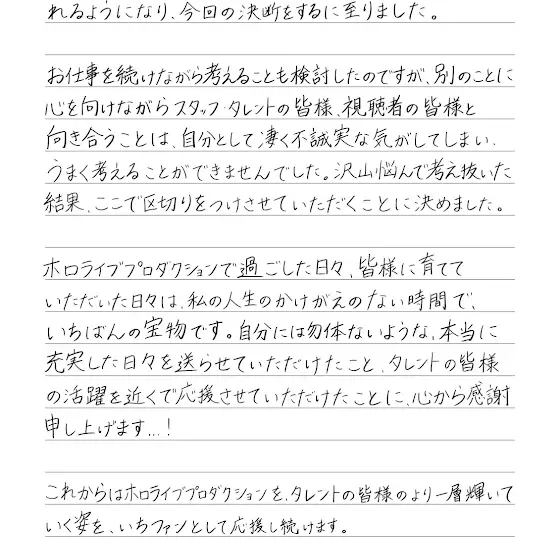 れるようになり、今回の決断をするに至りました。
お仕事を続けながら考えることも検討したのですが、別のことに
心を向けながらスタッフ・タレントの皆様、視聴者の皆様と
向き合うことは、自分として凄く不誠実な気がしてしまい、
うまく考えることができませんでした。沢山悩んで考え抜いた
結果、ここで区切りをつけさせていただくことに決めました。
ホロライブプロダクションで過ごした日々、皆様に育てて
いただいた日々は、私の人生のかけがえのない時間で、
いちばんの宝物です。自分には勿体ないような、本当に
充実した日々を送らせていただけたこと、タレントの皆様
の活躍を近くで応援させていただけたことに、心から感謝
申し上げます…!
これからはホロライブプロダクションを、タレントの皆様のより一層輝いて
いく姿を、いちファンとして応援し続けます。